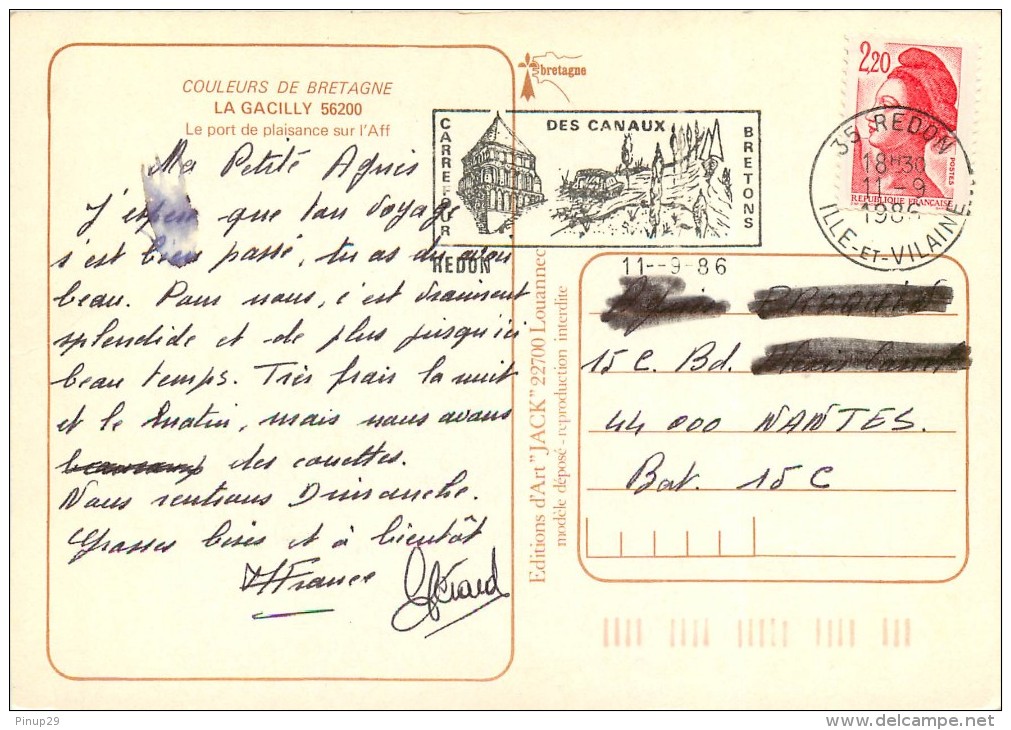 COULEURS DE BRETAGNE
LA GACILLY 56200
Le port de plaisance sur l'Aff
Ma Petite Agnès
J'espère que ton voyage
s'est bien passé, tu as dû avoir
beau. Pour nous, c'est vraiment
splendide et de plus jusqu'ici
beau temps. Très frais la nuit
et le matin, mais nous avons
des couettes.
Nous rentrons Dimanche.
Grosses bises et à bientôt
MFrance Gérard
bretagne
CARREFOUR
DES CANAUX
BRETONS
REDON
11--9-86
2,20
POSTES
REPUBLIQUE FRANÇAISE
35 REDON
18H30
11-9
1986
ILLE-ET-VILAINE
Editions d'Art "JACK" 22700 Louannec
modèle déposé - reproduction interdite
15 C. Bd.
44 000 NANTES.
Bat. 15 C
Pinup29
delcampe.net